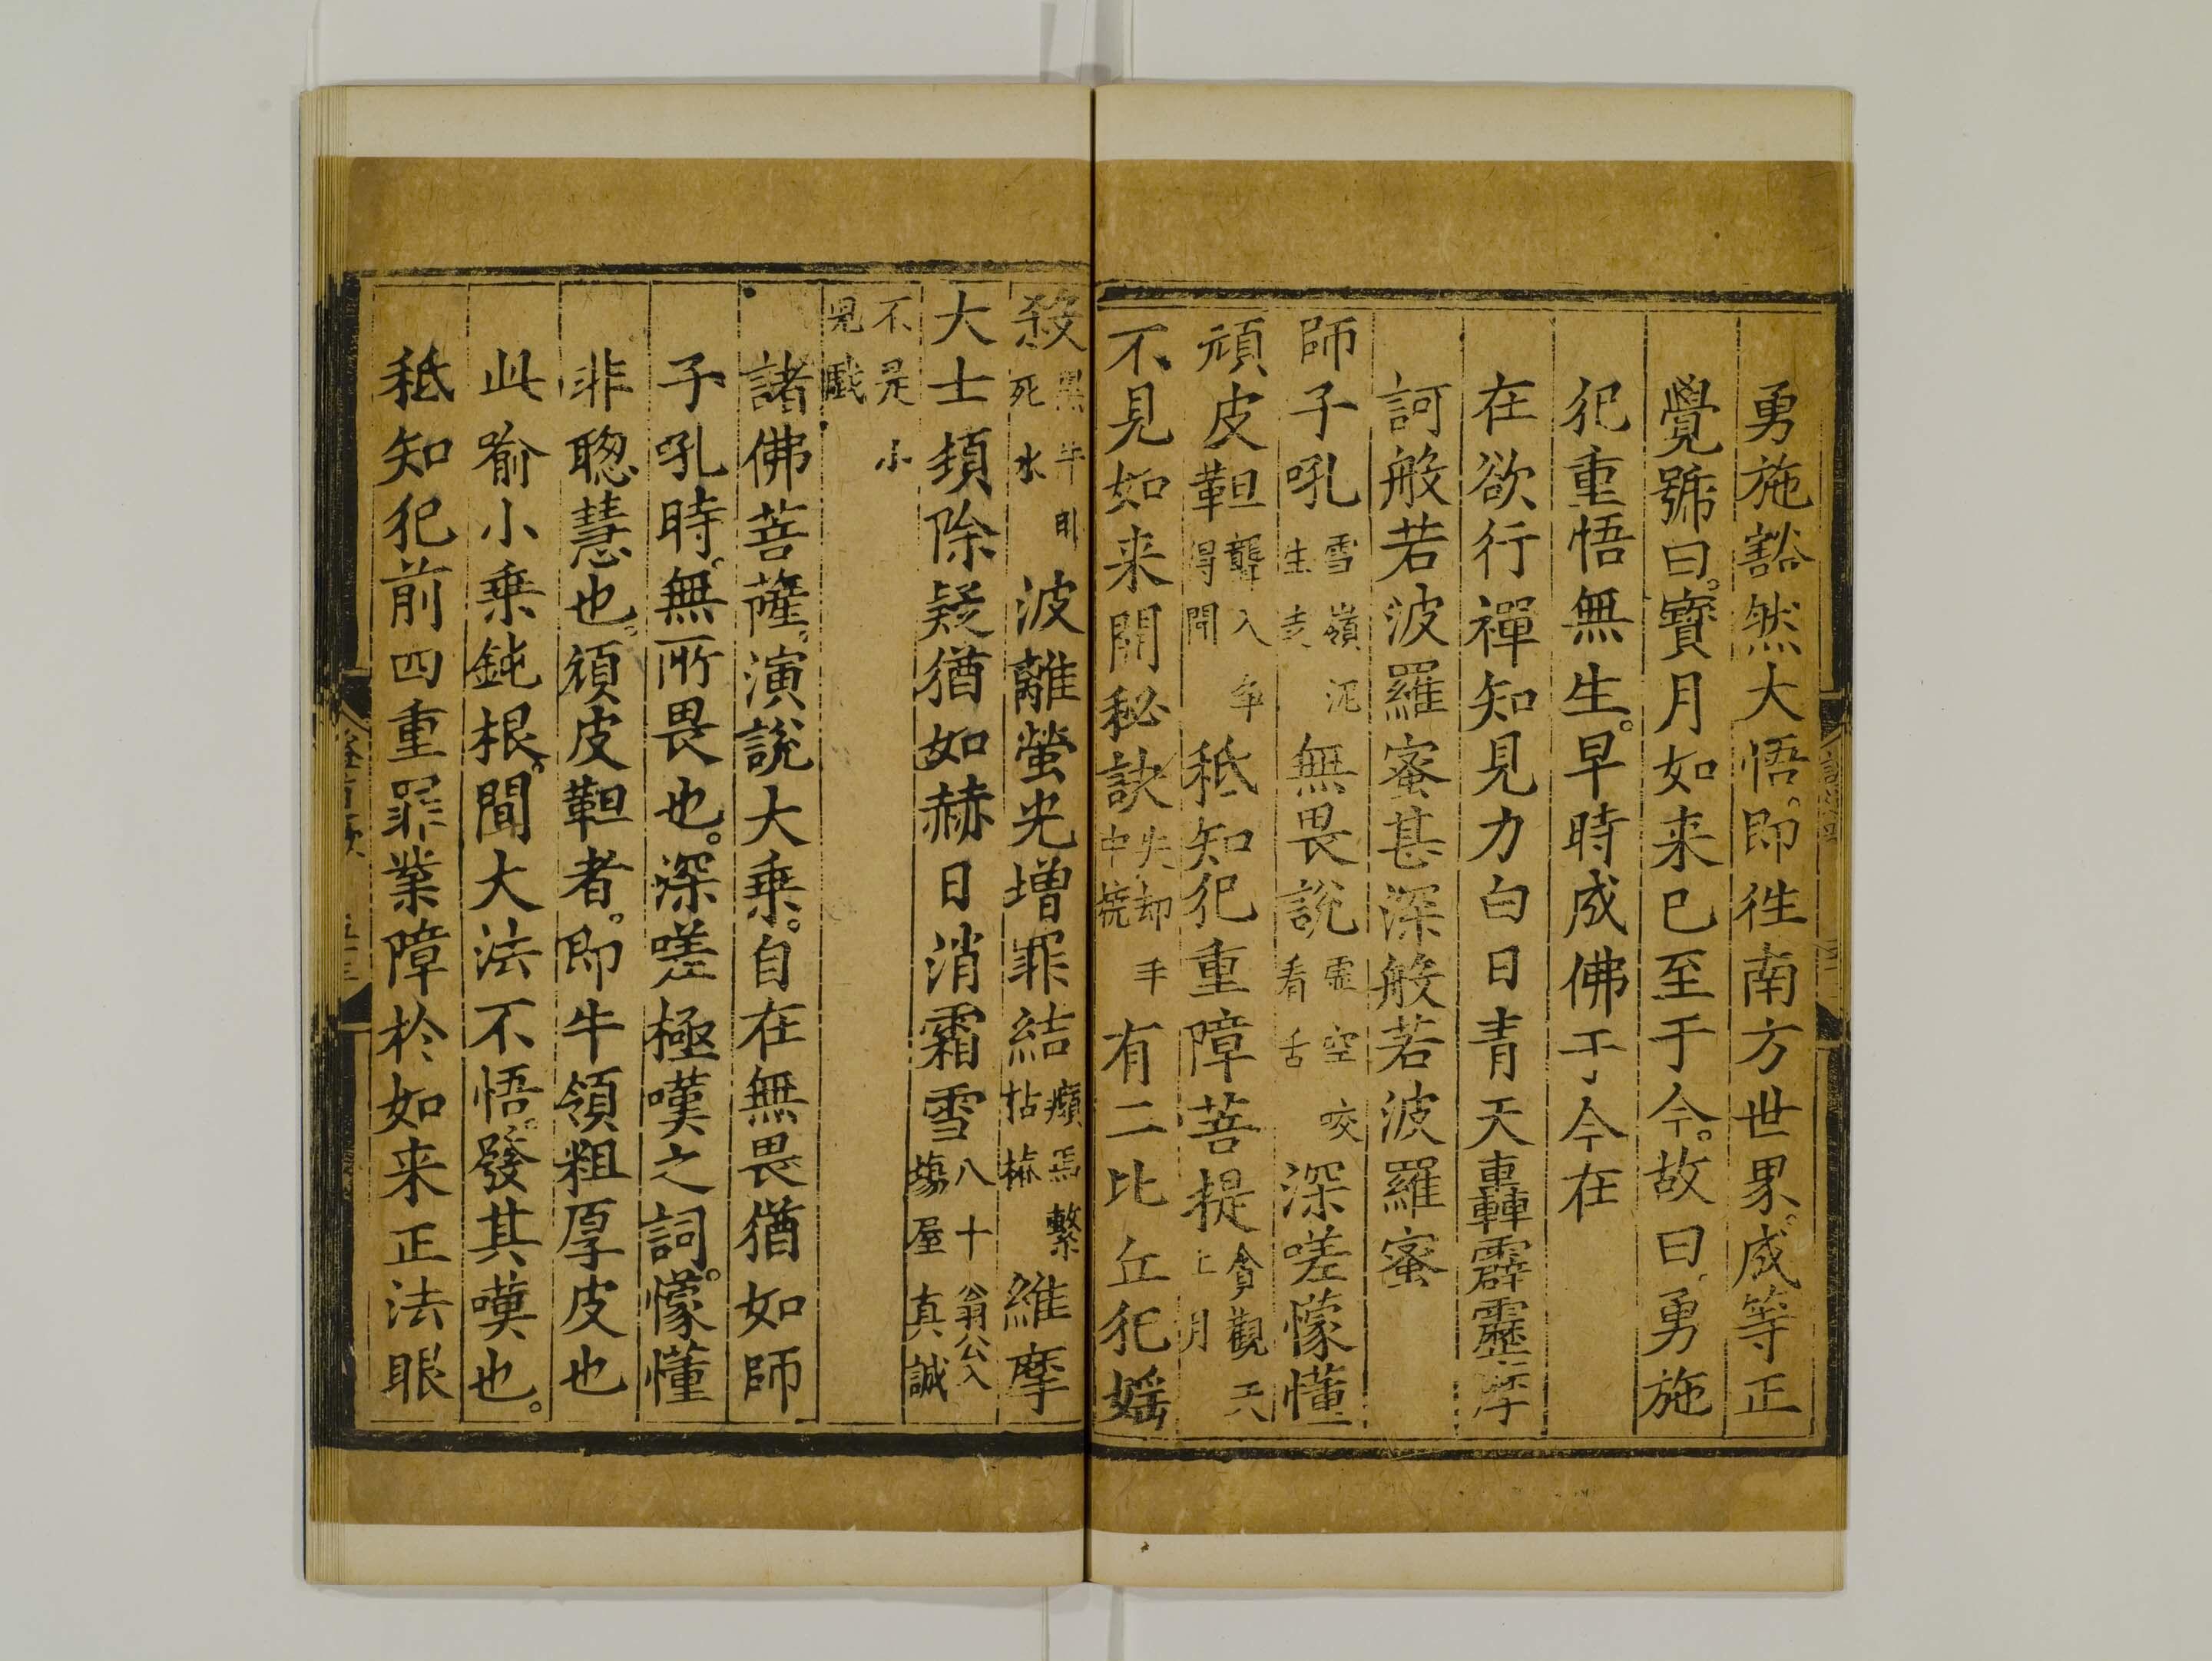 勇施豁然大悟。即徃南方世界。成等正
覺號曰。寶月如来巳至于今。故曰。勇施
犯重悟無生。早時成佛于今在
在欲行禪知見力白日青天轟霹靂
訶般若波羅蜜甚深般若波羅蜜
師子吼雪嶺泥生無畏說虛空咬看舌深嗟懞懂
頑皮靼聾入耳得聞秪知犯重障菩提貪觀天上月
不見如来開秘訣失却手中橈有二比丘犯婬
殺黑牛卧死水波離螢光增罪結癩馬繫枯樁維摩
大士頓除疑猶如赫日消霜雪八十翁公入塲屋真誠
不是小兒戲
諸佛菩薩。演說大乗。自在無畏猶如師
子吼時。無所畏也。深嗟極嘆之詞。懞懂
非聦慧也。頑皮靼者。即牛領粗厚皮也
此喻小乗鈍根。聞大法不悟。發其嘆也。
秪知犯前四重罪業障於如来正法眼